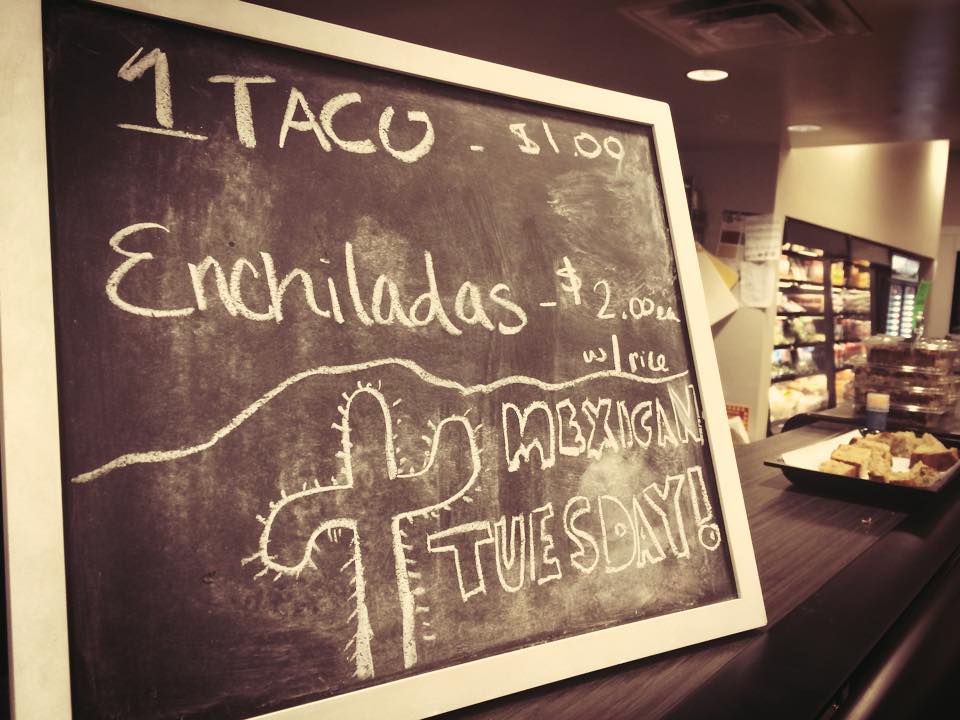 1 TACO - $1.00
Enchiladas - $2.00 ea
w/ rice
MEXICAN
TUESDAY!